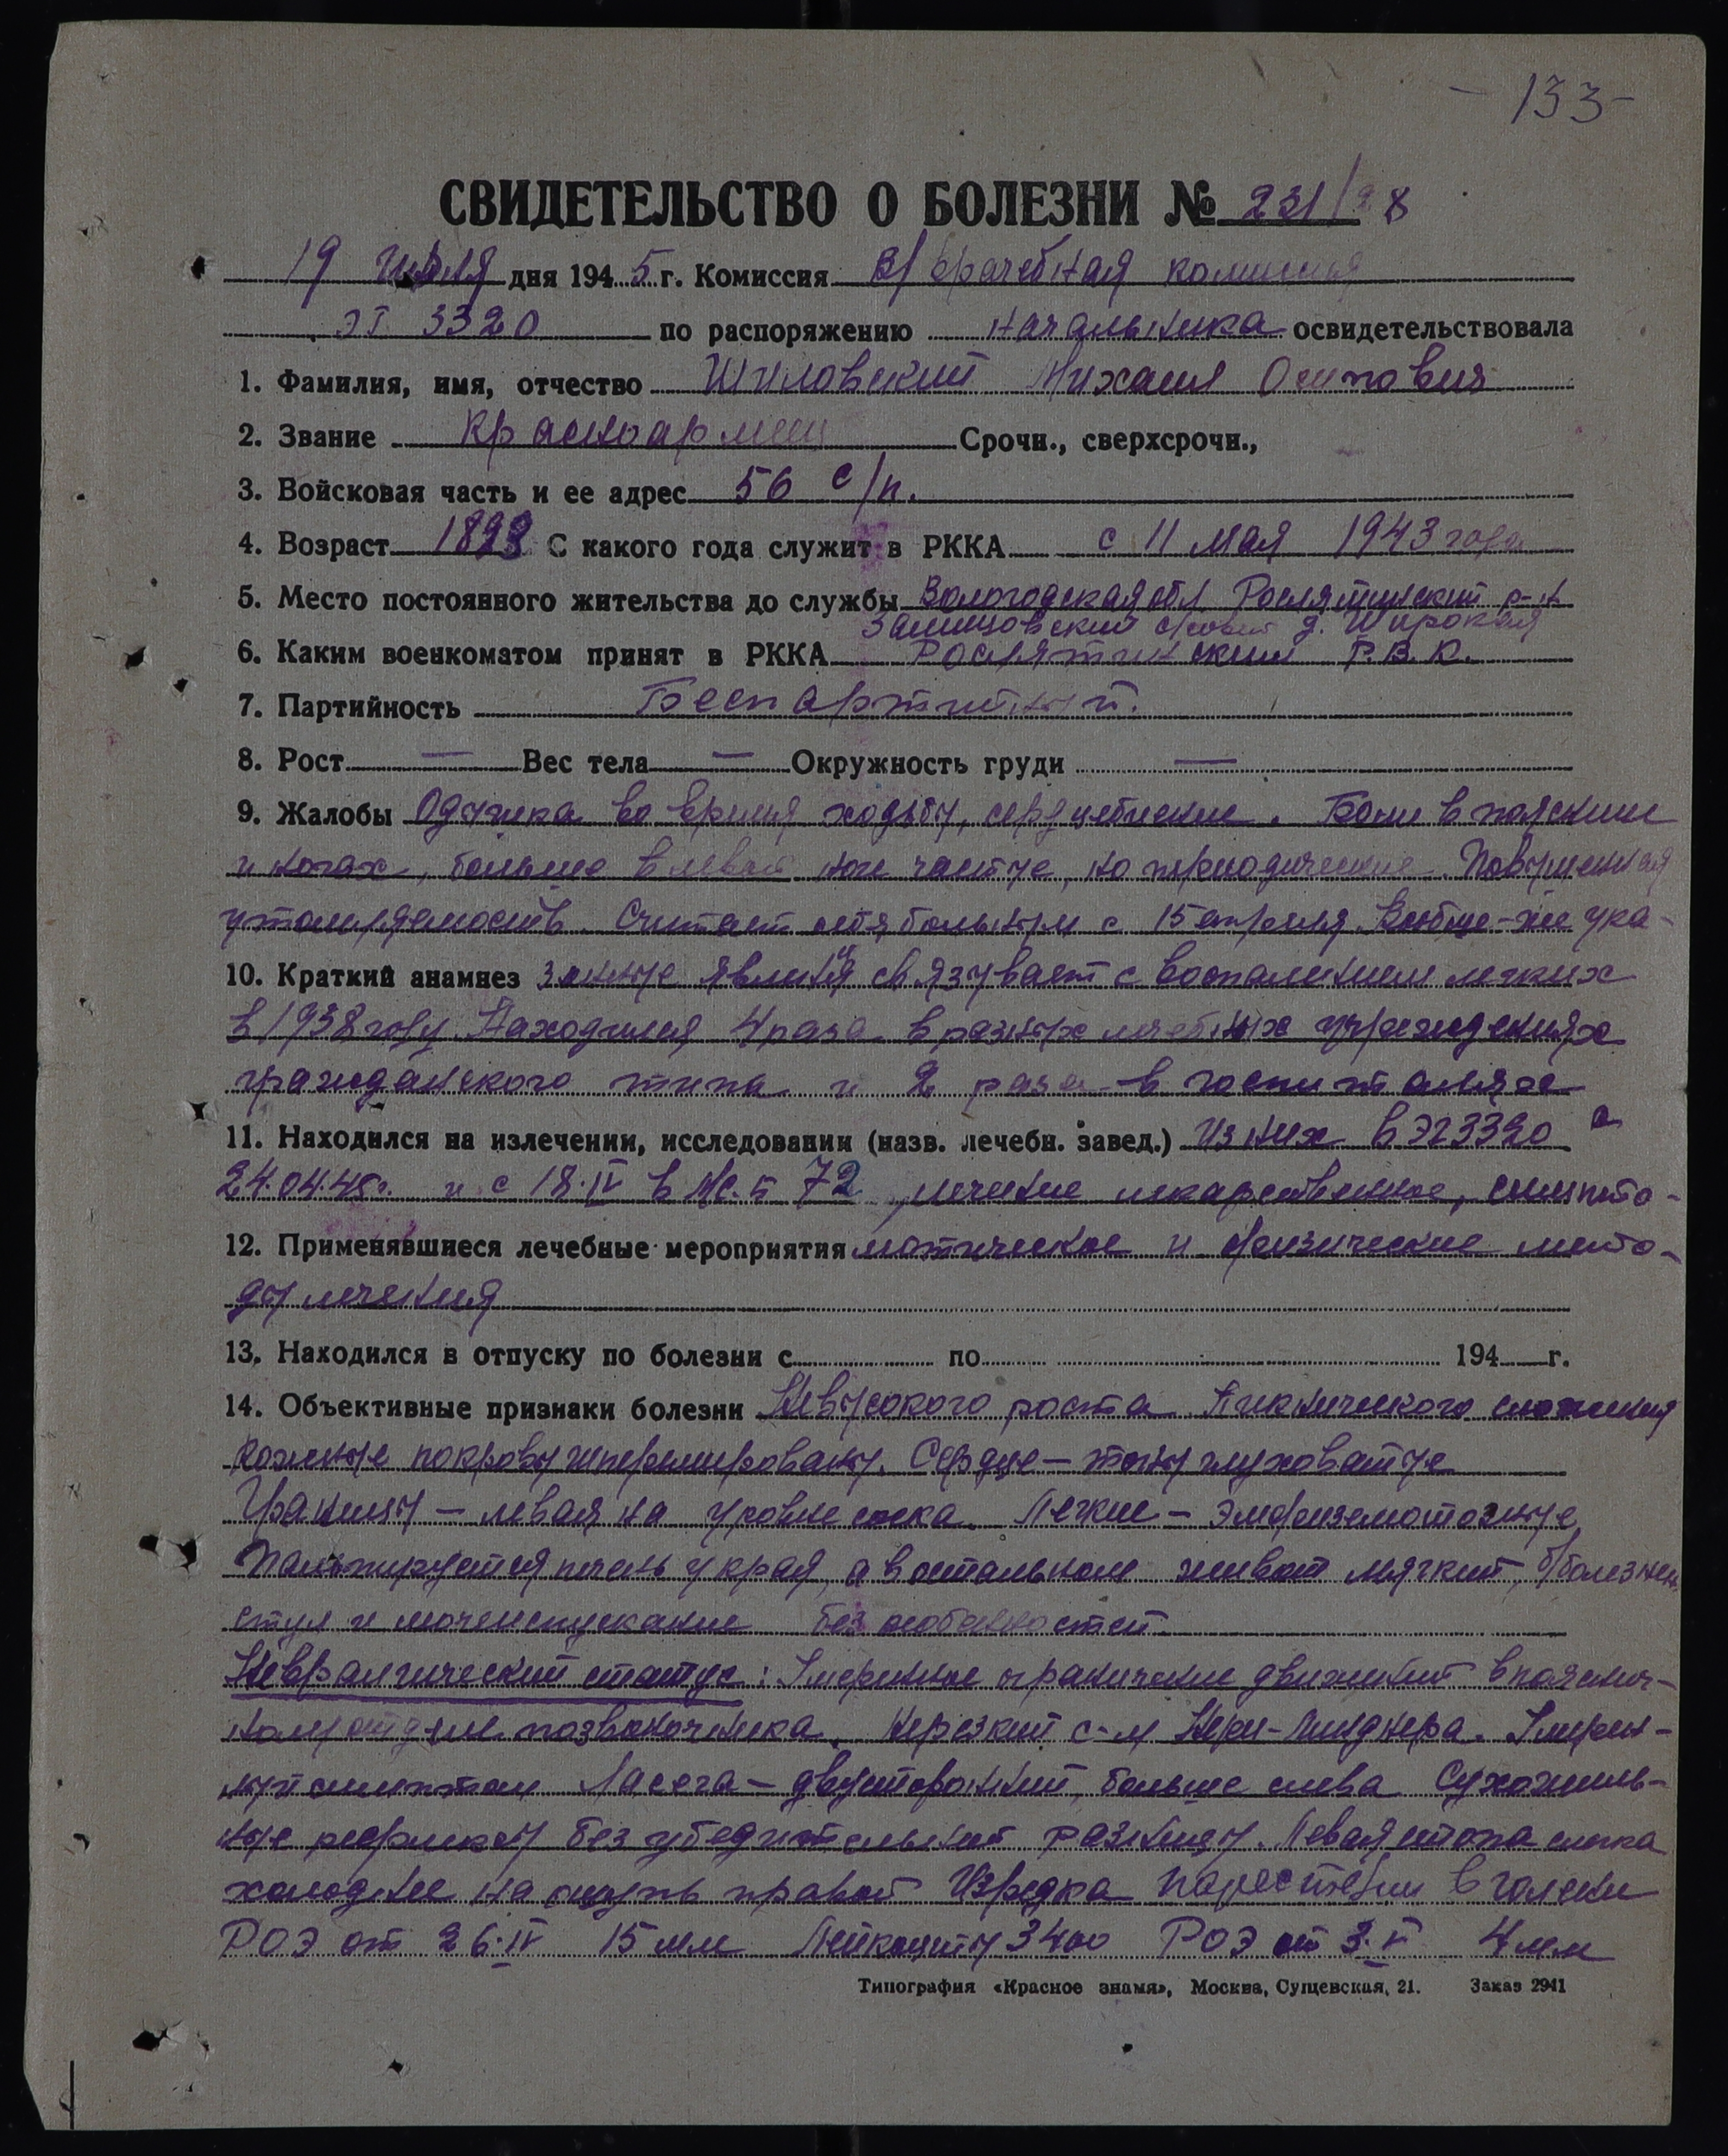 - 133 -
СВИДЕТЕЛЬСТВО О БОЛЕЗНИ № 231/28
19 дня 1945 г. Комиссия Врачебная комиссия
ЭГ 3320 по распоряжению начальника освидетельствовала
1. Фамилия, имя, отчество Шиловский Михаил Осипович
2. Звание красноармеец Срочн., сверхсрочн.,
3. Войсковая часть и ее адрес 56 с/п.
4. Возраст 1893 С какого года служит в РККА с 11 мая 1943 года
5. Место постоянного жительства до службы Вологодская обл. Рослятинский р-н
с/совет д. Широкая
6. Каким военкоматом принят в РККА Рослятинским Р.В.К.
7. Партийность Беспартийный.
8. Рост — Вес тела — Окружность груди —
9. Жалобы Одышка во время ходьбы, сердцебиение. Боли в пояснице
и ногах, больше в левой не частые, но периодические. Повышенная
утомляемость. Считает себя больным с 15 апреля. Вообще-же ука-
10. Краткий анамнез занные явления связывает с воспалением легких
в 1938 году. Находился 4 раза в разных лечебных учреждениях
гражданского типа и 2 раза в госпиталях
11. Находился на излечении, исследовании (назв. лечебн. завед.) Из них в ЭГ 3320 с
24.04.45г. и с 18.IV в 72 лечение лекарственное, симпто-
12. Применявшиеся лечебные мероприятия матическое и физические мето-
ды лечения
13. Находился в отпуску по болезни с по 194 г.
14. Объективные признаки болезни Невысокого роста Пикнического сложения
кожные покровы гиперемированы. Сердце — тоны глуховатые
Границы — левая на уровне соска. Легкие — эмфизематозные,
Пальпируется печень у края, а в остальном живот мягкий, б/болезнен.
стул и мочеиспускание без особенностей.
Неврологический статус: Умеренное ограничение движений в пояснич-
ном отделе позвоночника. Нерезкий с-м Нери-Линднера. Умерен-
ный симптом Ласега — двусторонний, больше слева Сухожиль-
ные рефлексы без убедительной разницы. Левая стопа слегка
холоднее на ощупь правой Изредка парестезии в голени
РОЭ от 26.IV 15 мм Лейкоциты 3400 РОЭ от 3.V 4 мм
Типография «Красное знамя», Москва, Сущевская, 21. Заказ 2941